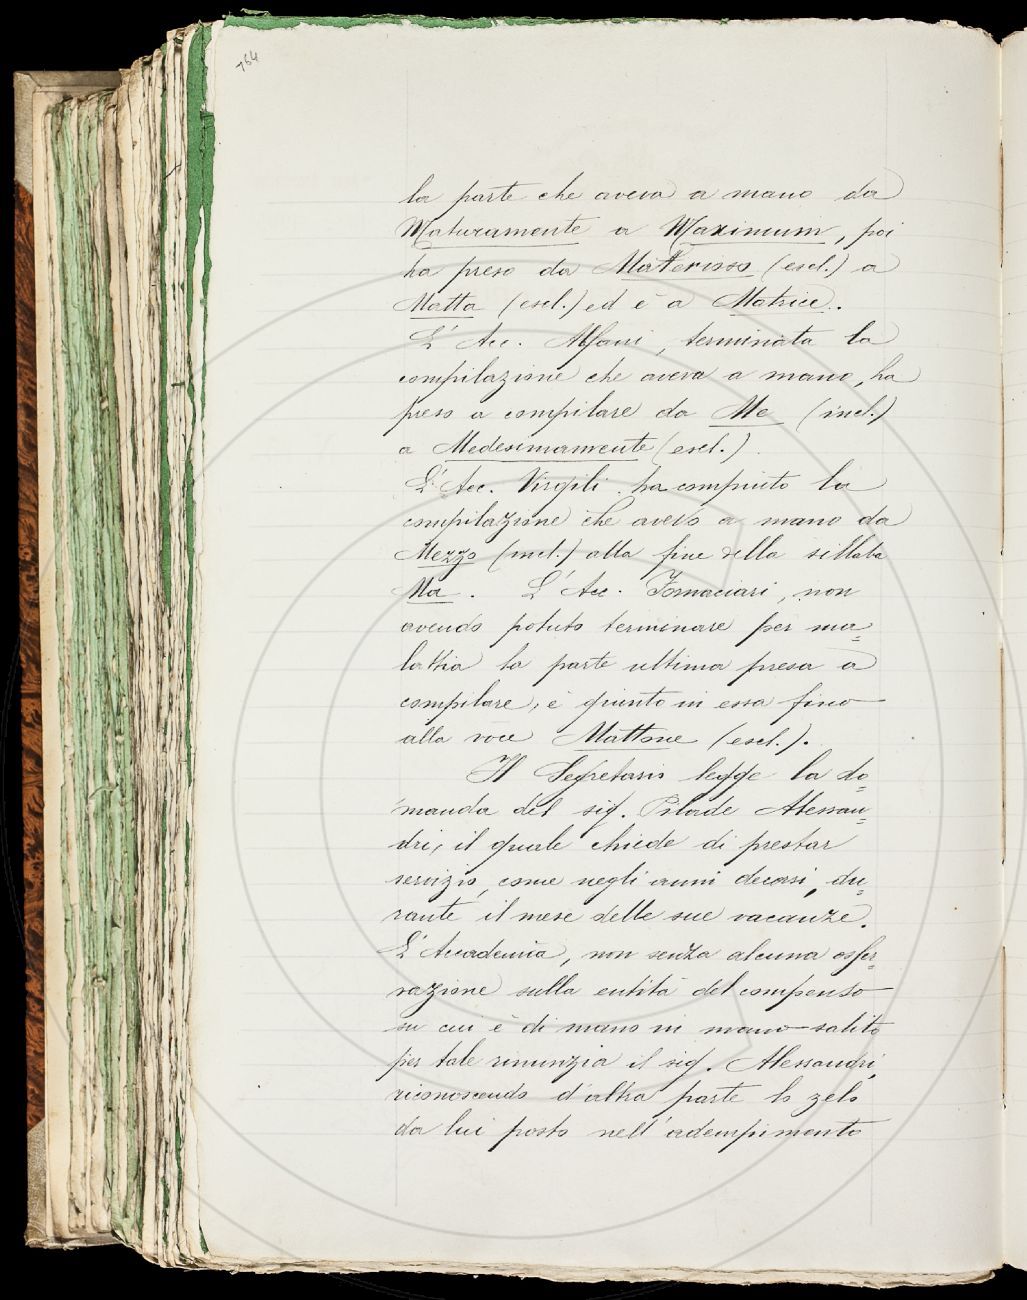 764
la parte che aveva a mano da
Maturamente a Maximum, poi
ha preso da Materioso (escl.) a
Matta (escl.) ed è a Matrice.
L'Acc. Alfani, terminata la
compilazione che aveva a mano, ha
preso a compilare da Me (incl.)
a Medesimamente (escl.).
L'Acc. Virgili ha compiuto la
compilazione che aveva a mano da
Mezzo (incl.) alla fine della sillaba
Ma. L'Acc. Fornaciari, non
avendo potuto terminare per ma=
lattia la parte ultima presa a
compilare, è giunto in essa fino
alla voce Mattone (escl.).
Il Segretario legge la do=
manda del sig. Pilade Alessan=
dri, il quale chiede di prestar
servizio, come negli anni decorsi, du=
rante il mese delle sue vacanze.
L'Accademia, non senza alcuna osser=
vazione sulla entità del compenso
su cui è di mano in mano salito
per tale rinunzia il sig. Alessandri,
riconoscendo d'altra parte lo zelo
da lui posto nell'adempimento